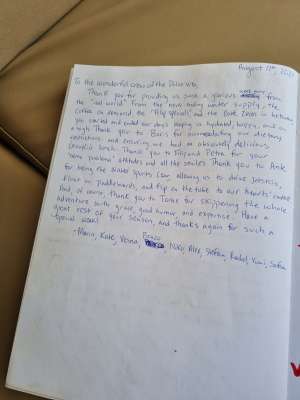 August 12th,
To the wonderful crew of the Dolce Vita,
Thank you for providing us such a glorious week away from
the "real world." From the never ending water supply, the
coffee on demand, the "Filip special," and the book deals in between
you catered and cared our days keeping us hydrated, happy, and on
a high. Thank you to Boris for accommodating our dietary
restrictions and ensuring we had an absolutely delicious
lunch. Thank you to Filip and Petra for your
"nema problema" attitudes and all the smiles. Thank you to Ante
for being the water sports czar, allowing us to drive jetskis,
float on paddleboards, and flip on the tube to our hearts' content.
And, of course, thank you to Tonci for skippering the whole
adventure with grace, good humor, and expertise. Have a
great rest of your season, and thanks again for such a
special week!
- Maria, Kate, Vesna, Niko, Alex, Stefan, Rachel, Yumi, Sofia